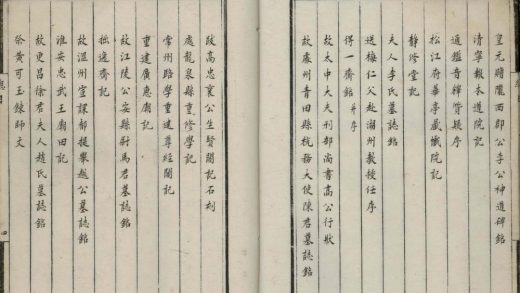 皇元贈隴西郡公李公神道碑銘
清寧報本道院記
通鑑音釋質疑序
松江府華亭藏懺院記
靜修堂記
夫人李氏墓誌銘
送梅仁父赴潮州教授任序
得一齋銘并序
故太中大夫刑部尚書高公行狀
故處州青田縣稅務大使陳君墓誌銘
跋高忠襄公生賢閣記石刻
處龍泉縣重修學記
常州路學重建尊經閣記
重建廣惠廟記
故江陵公安縣尉馬君墓誌銘
拙逸齋記
故溫州宣課都提舉趙公墓誌銘
淮安忠武王廟田記
故夏昌徐君夫人趙氏墓誌銘
徐黄可玉鍊師文